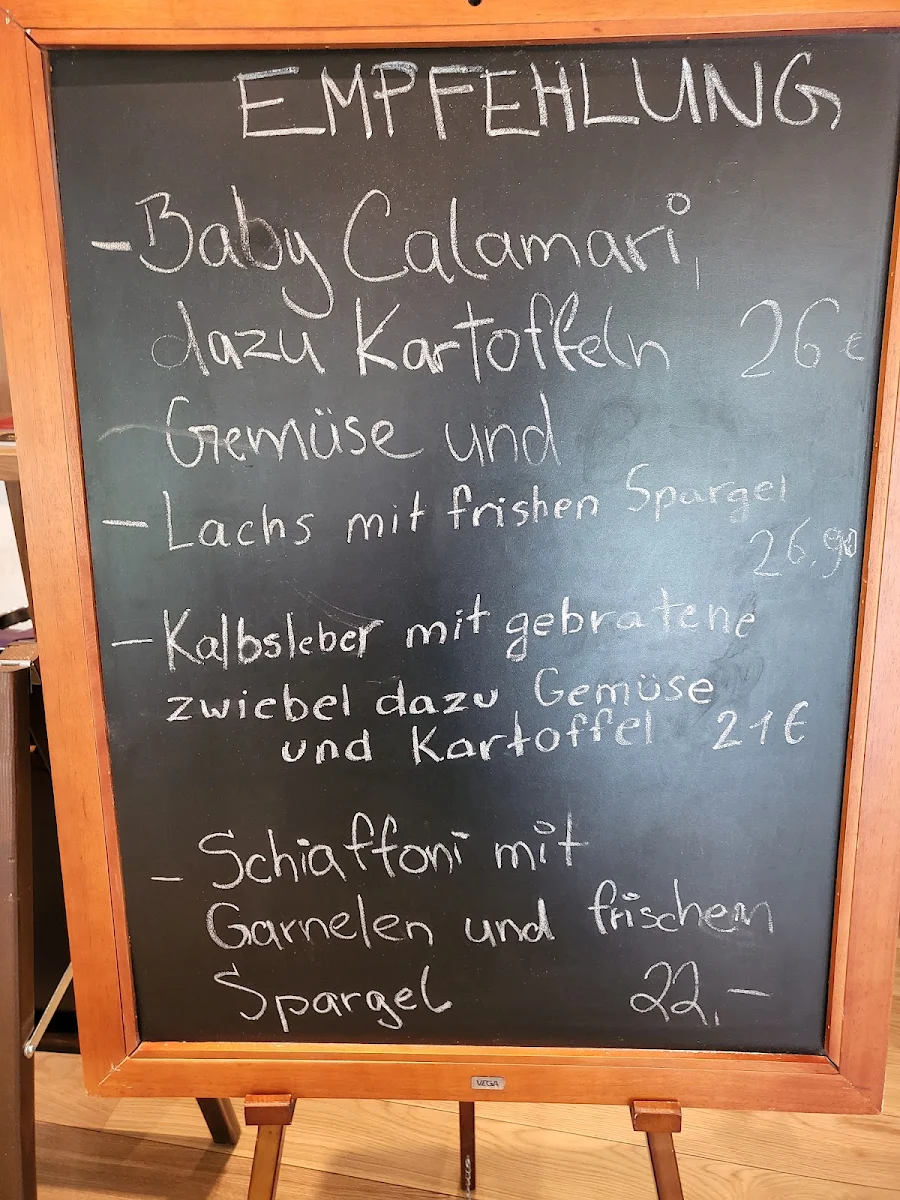 EMPFEHLUNG
- Baby Calamari,
dazu Kartoffeln 26 €
Gemüse und
- Lachs mit frishen Spargel
26,90
- Kalbsleber mit gebratene
zwiebel dazu Gemüse
und Kartoffel 21€
- Schiaffoni mit
Garnelen und frischem
Spargel 22,-
VEGA